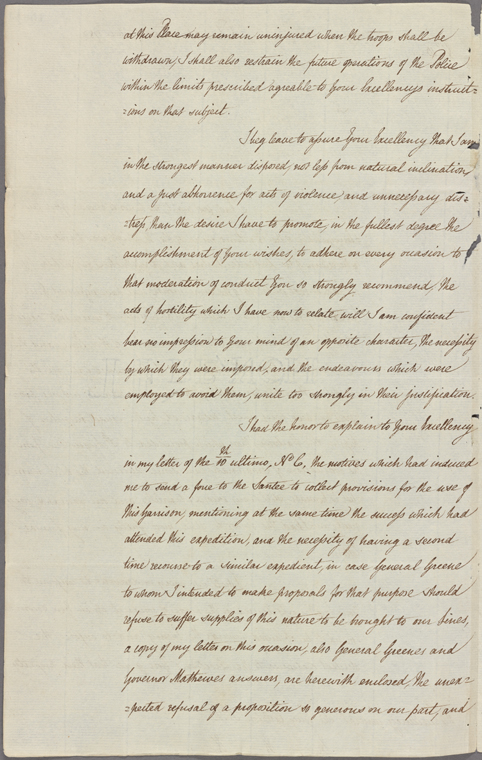 at this Place may remain uninjured when the troops shall be
withdrawn, I shall also restrain the future operations of the Police
within the limits prescribed agreable to Your Excellencys instruct=
=ions on that subject.
I beg leave to assure Your Excellency that I am
in the strongest manner disposed, not less from natural inclination,
and a just abhorence for acts of violence and unnecessary dis=
=tress, than the desire I have to promote, in the fullest degree the
accomplishment of Your wishes, to adhere on every occasion to
that moderation of conduct You so strongly recommend, the
acts of hostility which I have now to relate, will I am confident
bear no impression to Your mind of an opposite character, the necessity
by which they were imposed, and the endeavours which were
employed to avoid them, unite too strongly in their justification.
I had the honor to explain to Your Excellency
in my letter of the 10th ultimo, No. 6, the motives which had induced
me to send a force to the Santee to collect provisions for the use of
this Garrison, mentioning at the same time the success which had
attended this expedition, and the necessity of having a second
time recourse to a similar expedient, in case General Greene
to whom I intended to make proposals for that purpose should
refuse to suffer supplies of this nature to be brought to our lines,
a copy of my letter on this occasion, also General Greenes and
Governor Mathewes answers, are herewith enclosed, the unex=
=pected refusal of a proposition so generous on our part, and